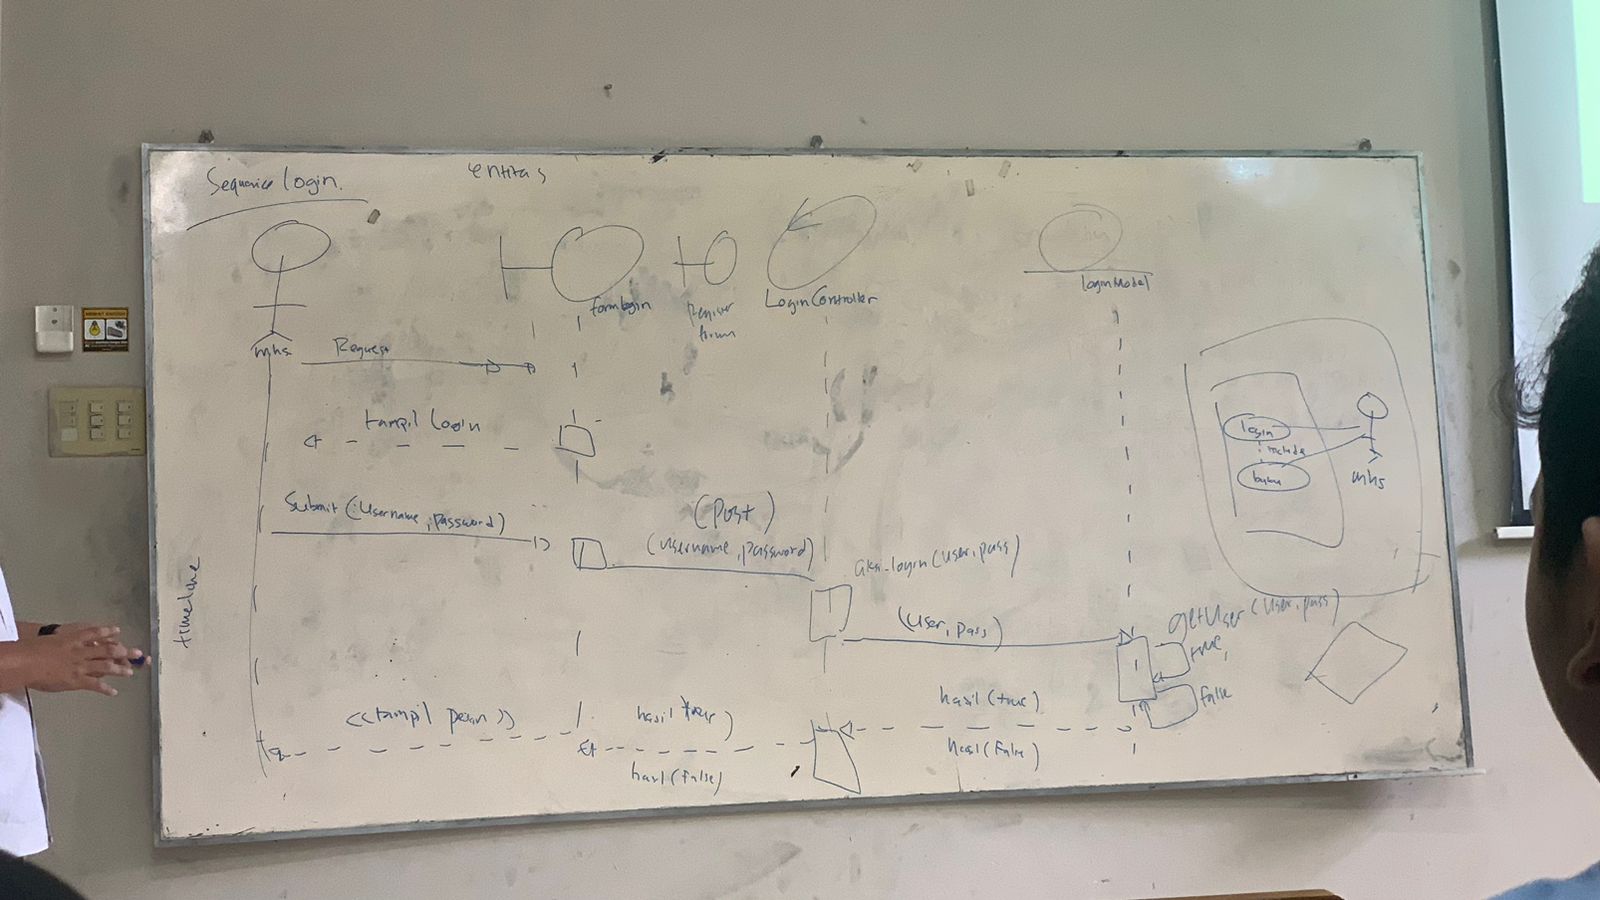 Sequence login.
entitas
formlogin
Register
form
LoginController
loginModel
mhs
Request
tampil login
Submit(:Username,:password)
(post)
(username,password)
aksi-login(user,pass)
(user,pass)
getUser(user,pass)
true,
false
hasil(true)
hasil(False)
hasil true)
hasil(false)
<<tampil pesan>>
timeline
login
include
buku
mhs